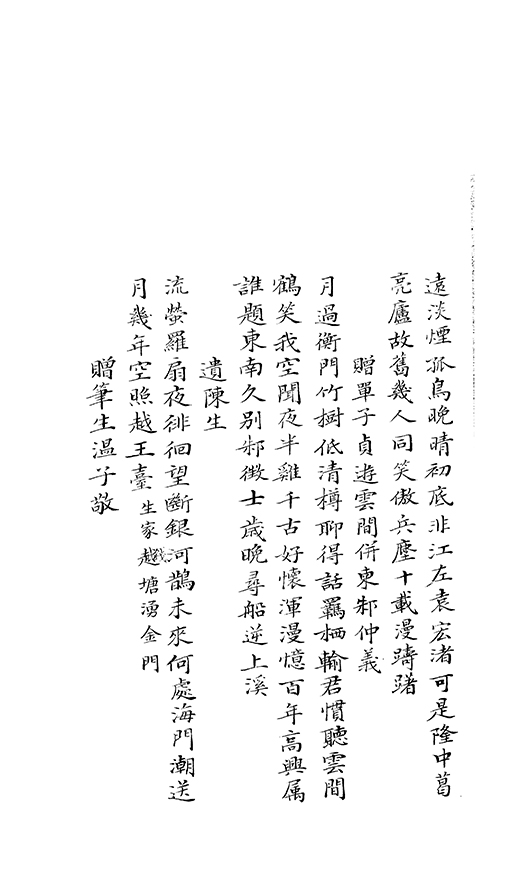 遠淡煙孤鳥晚晴初底非江左袁宏渚可是隆中葛
亮廬故舊幾人同笑傲兵塵十載漫躊躇
贈單子貞遊雲間併柬邾仲義
月過衡門竹樹低清樽聊得話羈栖輸君慣聽雲間
鶴笑我空聞夜半雞千古好懷渾漫憶百年高興属
誰題東南久別邾徵士歲晚尋船逆上溪
遺陳生
流螢羅扇夜徘徊望斷銀河鵲未來何處海門潮送
月幾年空照越王臺生家越錢塘湧金門
贈筆生温子敬